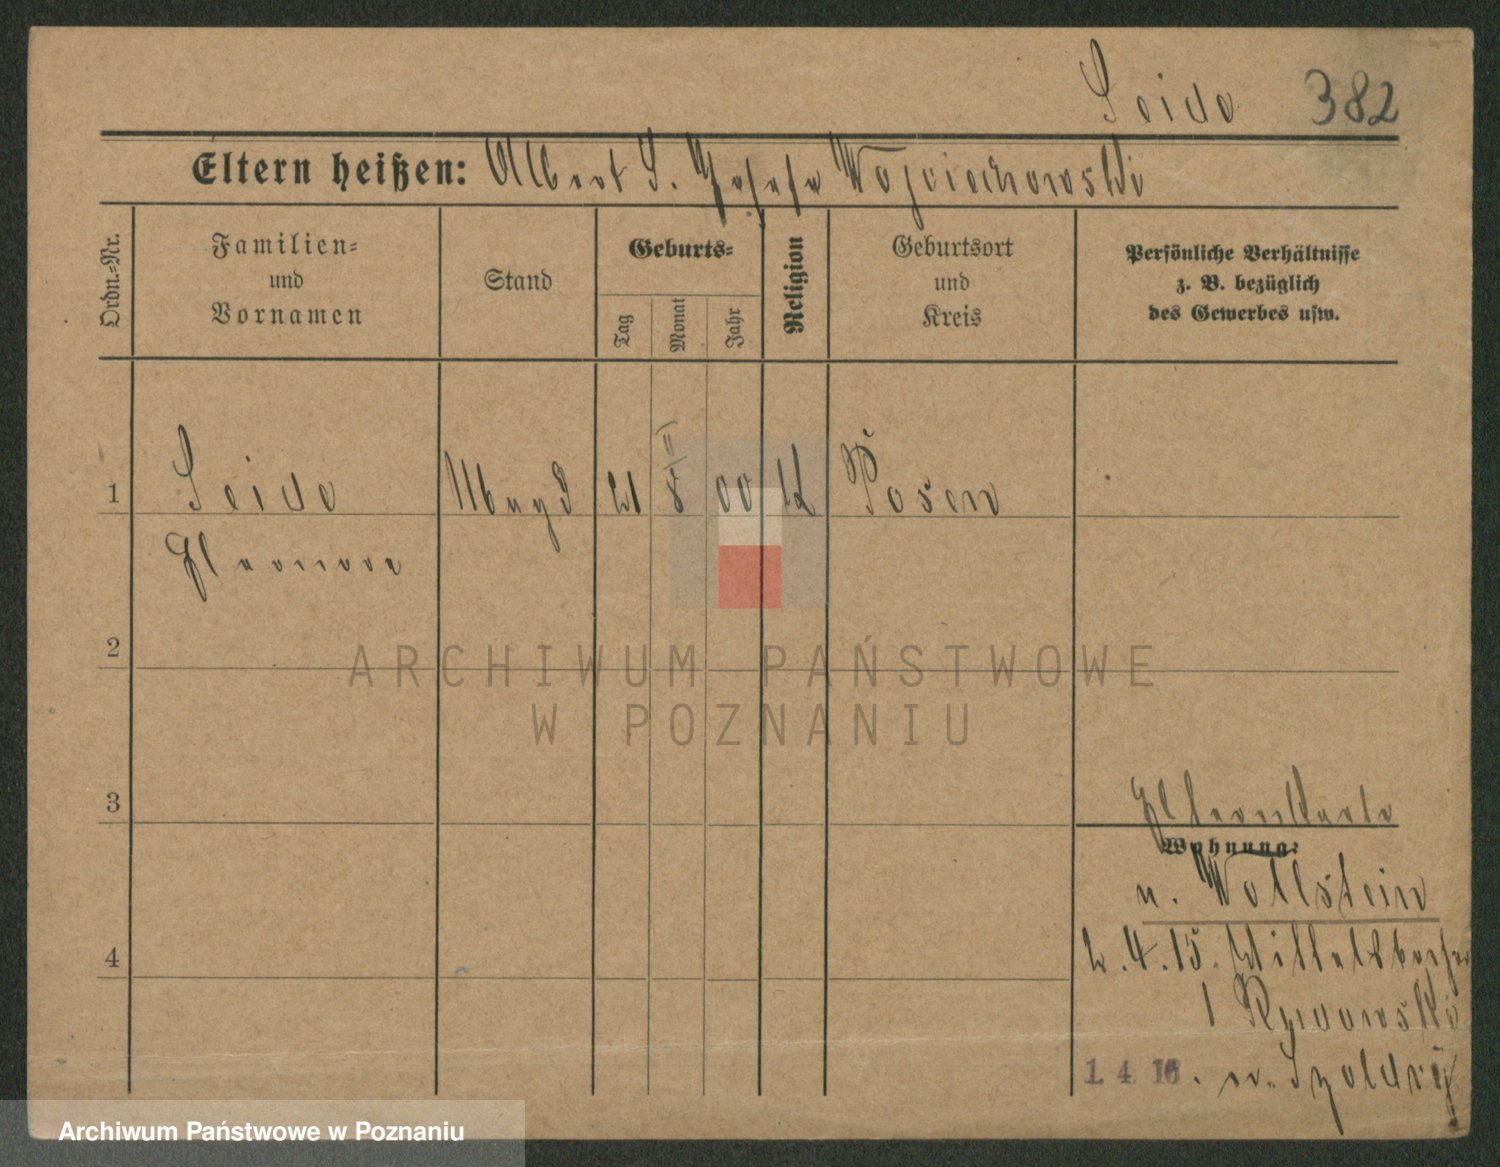 Seide 382
Eltern heißen: Albert S. Josefa Wojciechowski
Ordn.-Nr.
Familien- und Vornamen
Stand
Geburts-
Tag
Monat
Jahr
Religion
Geburtsort und Kreis
Persönliche Verhältnisse
z. B. bezüglich
des Gewerbes usw.
1 Seide Magd 21 8 00 K Posen
Eleonora
2
ARCHIWUM PAŃSTWOWE
W POZNANIU
3
Elternkarte
Wohnung:
n. Wollstein
4
2.4.15. Wittelsbacher
1 Rymowski
1. 4. 16. n. Szoldry
Archiwum Państwowe w Poznaniu